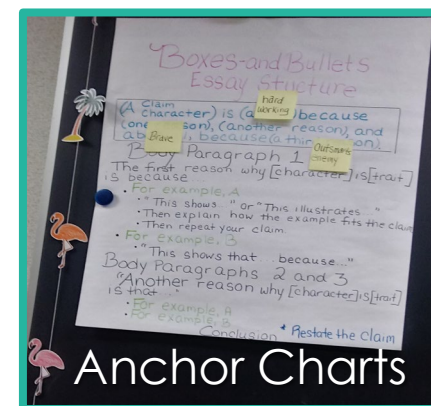 Boxes-and-Bullets
Essay Structure
Claim
hard
working
(A character) is (a )because
(one son), (another reason), and
Brave
ab , because(a thir son).
Outsmarts
enemy
Body Paragraph 1
The first reason why [character] is [trait]
is because
• For example, A
• "This shows..." or "This illustrates..."
• Then explain how the example fits the claim
• Then repeat your claim.
• For example, B
• "This shows that...because..."
Body Paragraphs 2 and 3
"Another reason why [character] is [trait]
is that..."
• For example, A
• For example, B
Conclusion * Restate the Claim
Anchor Charts